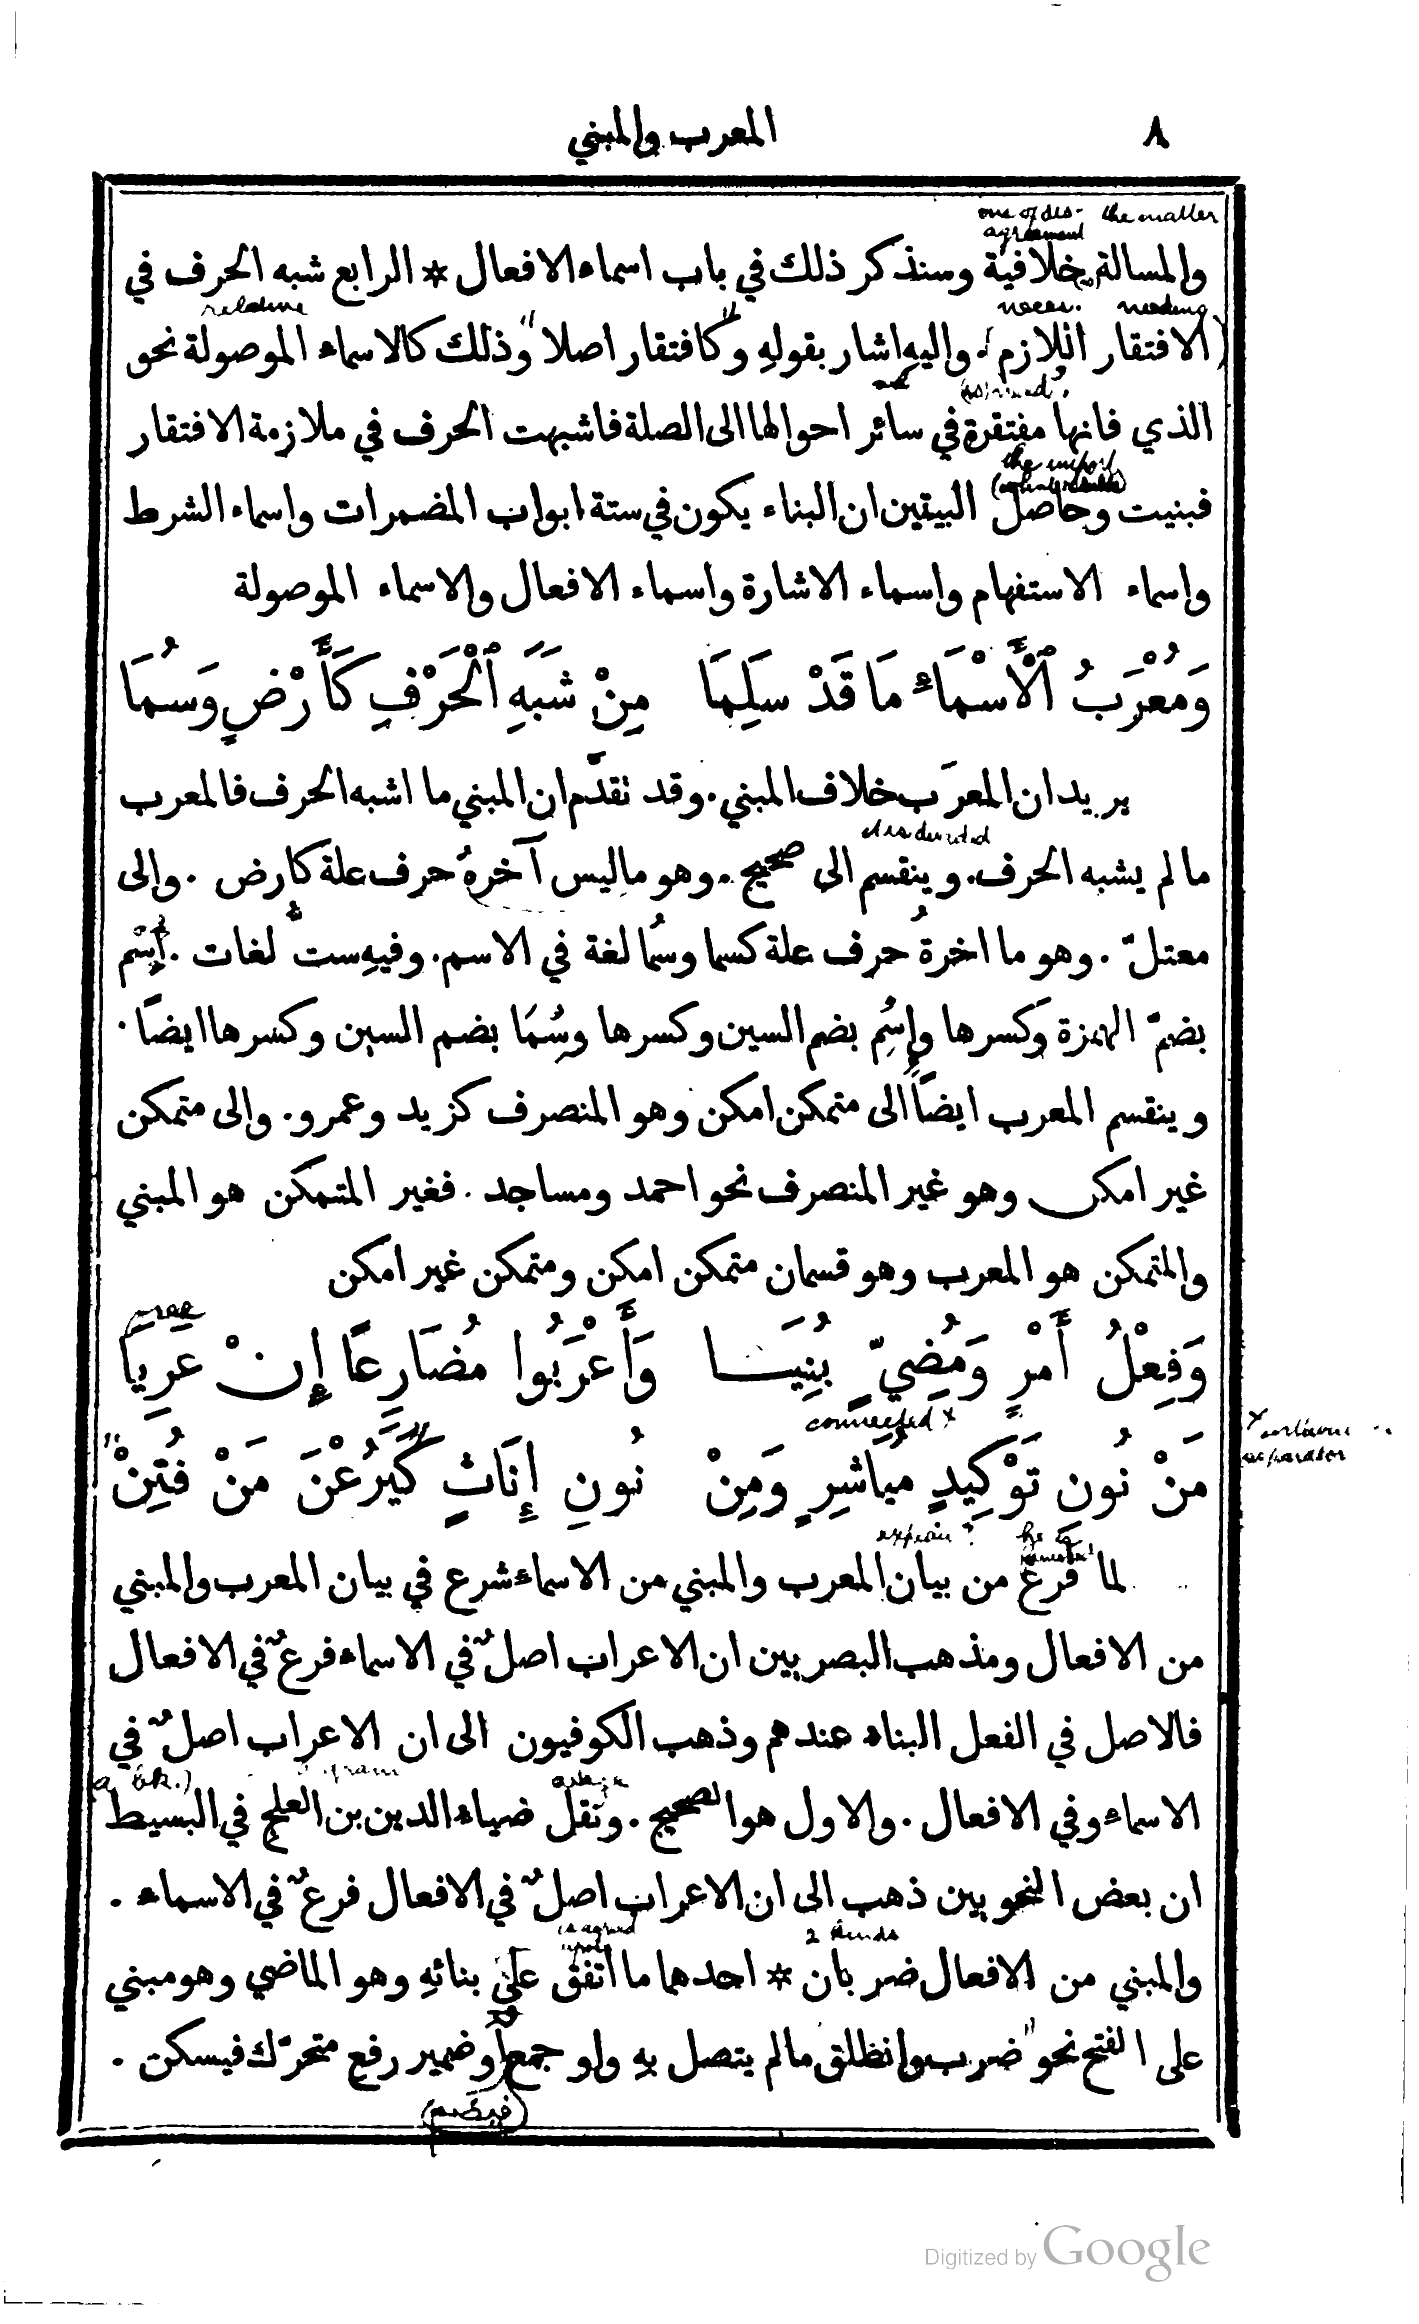 ٨
المعرب والمبني
one of dis- the matter
agreement
والمسالة خلافية وسنذكر ذلك في باب اسماء الافعال * الرابع شبه الحرف في
relative neces. needing
الافتقار اللازم . واليه اشار بقولهِ وكافتقار اصلا وذلك كالاسماء الموصولة نحو
الذي فانها مفتقرة في سائر احوالها الى الصلة فاشبهت الحرف في ملازمة الافتقار
the import
فبنيت وحاصل البيتين ان البناء يكون في ستة ابواب المضمرات واسماء الشرط
واسماء الاستفهام واسماء الاشارة واسماء الافعال والاسماء الموصولة
وَمُعْرَبُ ٱلْأَسْمَاءِ مَا قَدْ سَلِمَا مِنْ شَبَهِ ٱلْحَرْفِ كَأَرْضٍ وَسُمَا
يريد ان المعرَب خلاف المبني . وقد تقدّم ان المبني ما اشبه الحرف فالمعرب
is divided
ما لم يشبه الحرف . وينقسم الى صحيح . وهو ما ليس آخرهُ حرف علة كارض . والى
معتلّ . وهو ما اخرهُ حرف علة كسما وسُما لغة في الاسم . وفيهِ ست لغات . إسْم
بضمّ الهمزة وكسرها وإسُم بضم السين وكسرها وسُمَا بضم السين وكسرها ايضًا .
وينقسم المعرب ايضًا الى متمكن امكن وهو المنصرف كزيد وعمرو . والى متمكن
غير امكن وهو غير المنصرف نحو احمد ومساجد . فغير المتمكن هو المبني
والمتمكن هو المعرب وهو قسمان متمكن امكن ومتمكن غير امكن
free
وَفِعْلُ أَمْرٍ وَمُضِيٍّ بُنِيَا وَأَعْرَبُوا مُضَارِعًا إِنْ عَرِيَا
connected x
separator
مَنْ نُونِ تَوْكِيدٍ مُبَاشِرٍ وَمِنْ نُونِ إِنَاثٍ كَيَرُعْنَ مَنْ فُتِنْ
he is
لما فرغ من بيان المعرب والمبني من الاسماء شرع في بيان المعرب والمبني
من الافعال ومذهب البصريين ان الاعراب اصلٌ في الاسماء فرعٌ في الافعال
فالاصل في الفعل البناء عندهم وذهب الكوفيون الى ان الاعراب اصلٌ في
(a bk.)
الاسماء وفي الافعال . والاول هو الصحيح . ونقل ضياء الدين بن العلج في البسيط
ان بعض النحويين ذهب الى ان الاعراب اصلٌ في الافعال فرعٌ في الاسماء .
is agreed 2 kinds
upon
والمبني من الافعال ضربان * احدهما ما اتفق على بنائهِ وهو الماضي وهو مبني
على الفتح نحو ضرب وانطلق ما لم يتصل به واو جمع او ضمير رفع متحرّك فيسكن .
(فيضم)
Digitized by Google